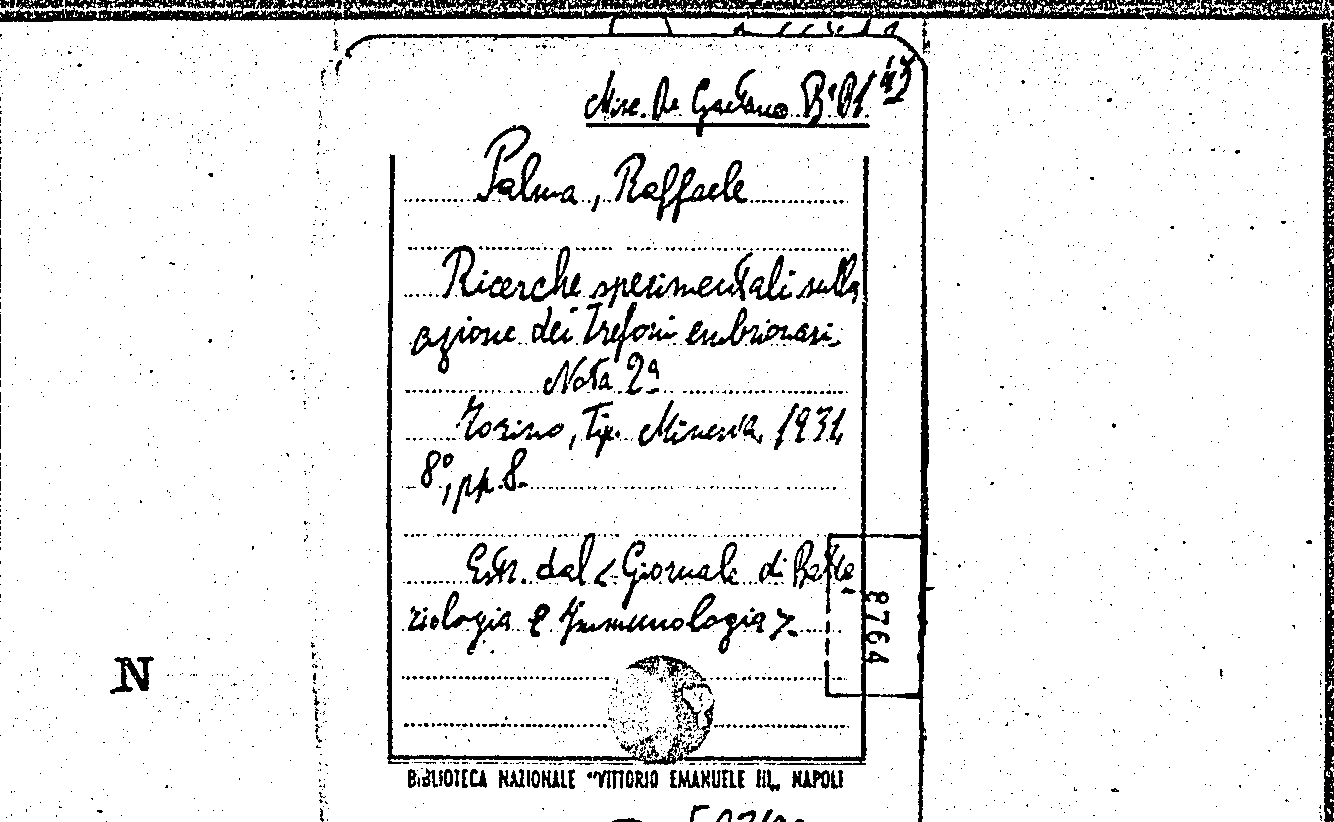 Misc. De Gaetano B° 01 43
Palma, Raffaele
Ricerche sperimentali sulla
azione dei trefoni embrionari.
Nota 2ª
Torino, Tip. Minerva, 1931,
8°, pp. 8.
Estr. dal < Giornale di Batte
riologia e Immunologia >.
8764
N
BIBLIOTECA NAZIONALE "VITTORIO EMANUELE III„ NAPOLI